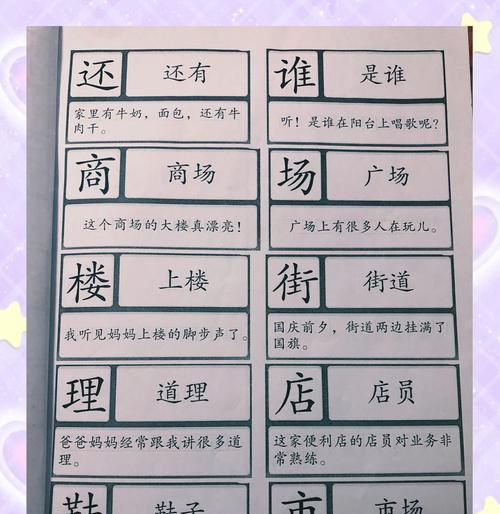 还 还有
家里有牛奶，面包，还有牛
肉干。
谁 是谁
听！是谁在阳台上唱歌呢？
商 商场
这个商场的大楼真漂亮！
场 广场
广场上有很多人在玩儿。
楼 上楼
我听见妈妈上楼的脚步声了。
街 街道
国庆前夕，街道两边挂满了
国旗。
理 道理
爸爸妈妈经常跟我讲很多道
理。
店 店员
这家便利店的店员对业务非
常熟练。
鞋 鞋子
市 市场